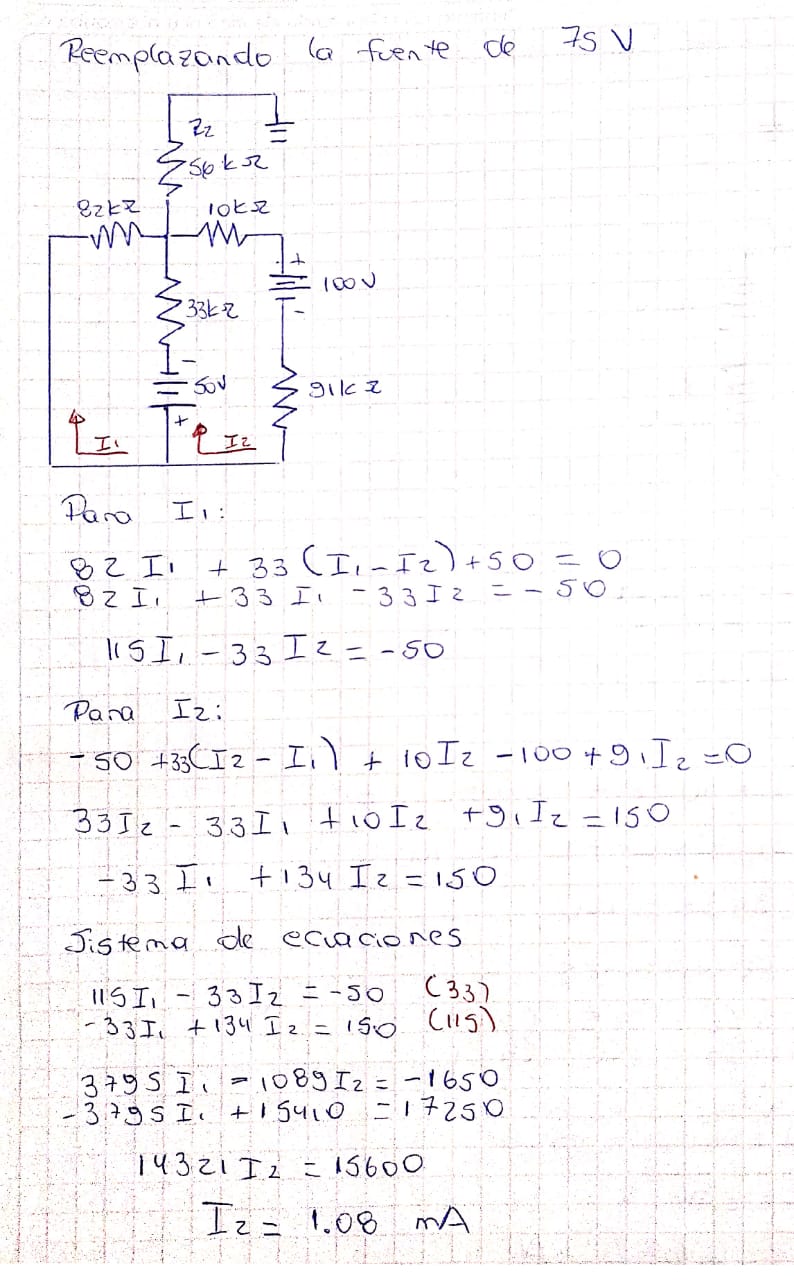 Reemplazando la fuente de 75 V
Z2
56kΩ
82kΩ 10kΩ
+
100V
33kΩ
-
-
50V
91kΩ
+
I1 I2
Para I1:
82 I1 + 33(I1 - I2) + 50 = 0
82 I1 + 33 I1 - 33 I2 = - 50
115 I1 - 33 I2 = -50
Para I2:
- 50 +33(I2 - I1) + 10 I2 - 100 + 91 I2 = 0
33 I2 - 33 I1 + 10 I2 + 91 I2 = 150
-33 I1 + 134 I2 = 150
Sistema de ecuaciones
115 I1 - 33 I2 = -50 (33)
-33 I1 + 134 I2 = 150 (115)
3795 I1 - 1089 I2 = -1650
-3795 I1 + 15410 = 17250
14321 I2 = 15600
I2 = 1.08 mA